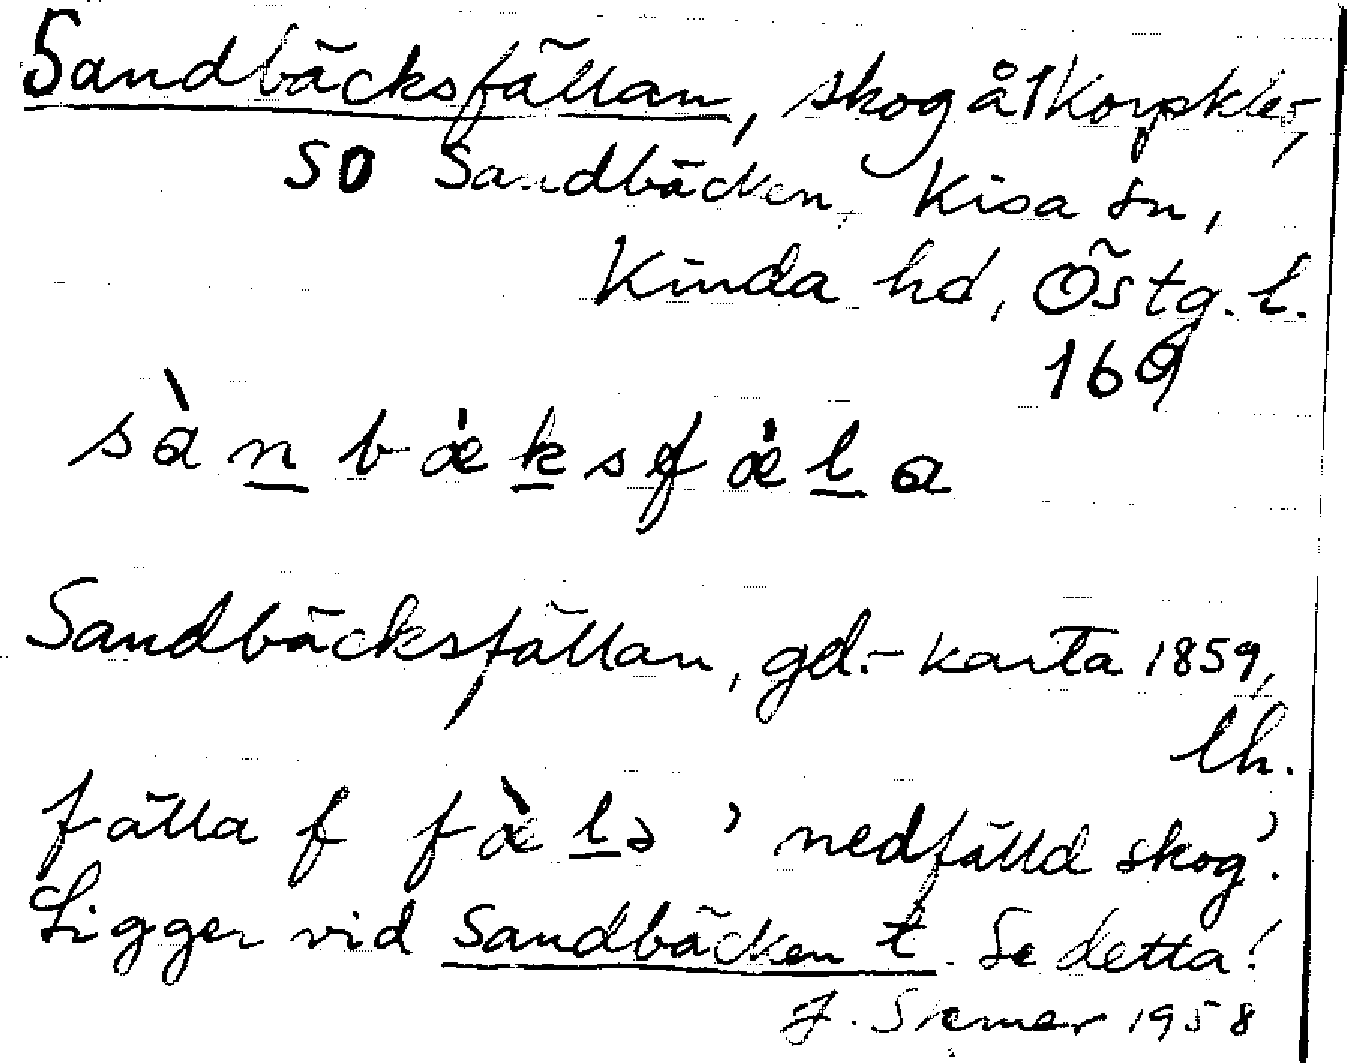 Sandbäcksfällan, skog å 1 Korpklev,
SO Sandbäcken, Kisa sn,
Kinda hd, Östg. l.
169
sàn bæksfæla
Sandbäcksfällan, gd.- karta 1859,
lh.
fälla f fæ̀lə 'nedfälld skog'.
Ligger vid Sandbäcken t. Se detta!
1958